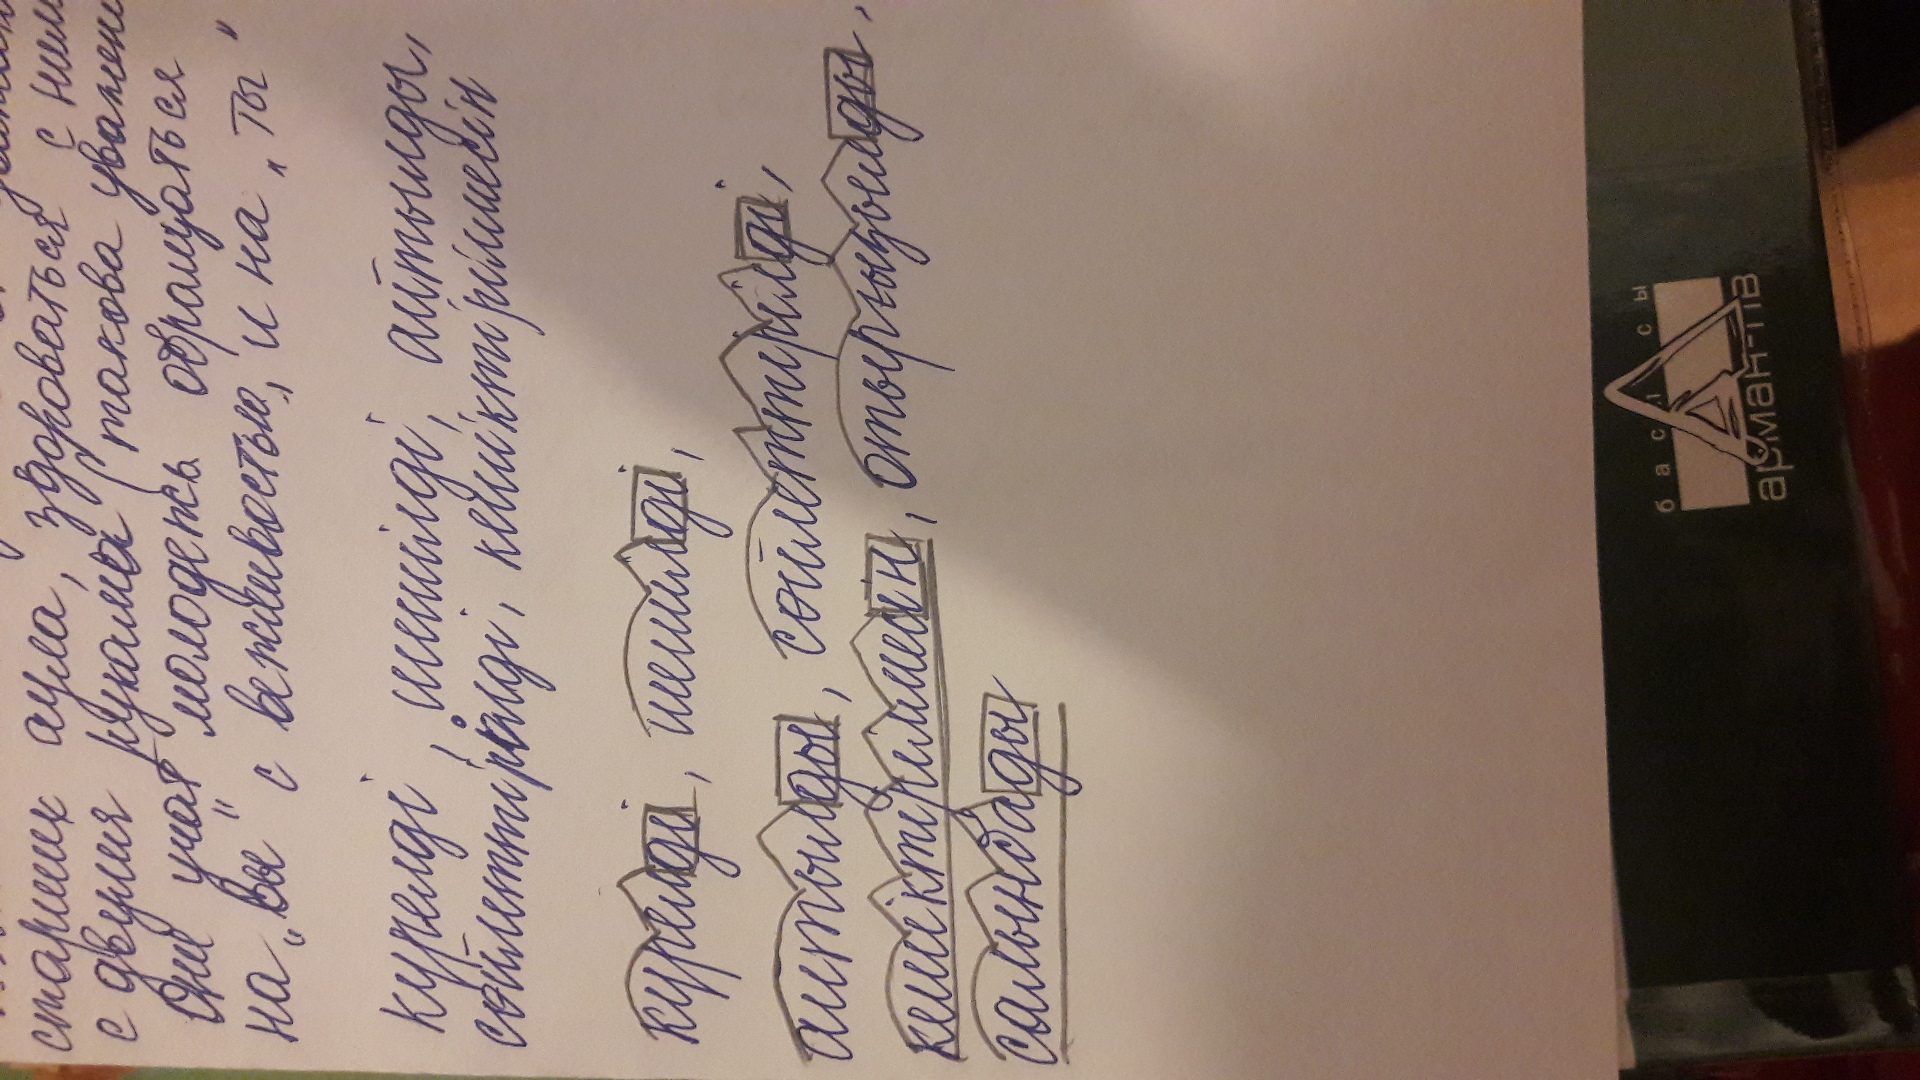 старших аула, здороваться с ним
с двумя руками такова уважени
Они учат молодежь обращаться
на „вы" с вежливостью, и на „ты"
күрелді, шешілді, айтылды,
сөйлеттірілді, кешіктірілмесін
күрелді, шешілді,
айтылды, сөйлеттірілді,
кешіктірілмеен, отырғызылды,
салындады
баспасы
арман-пв